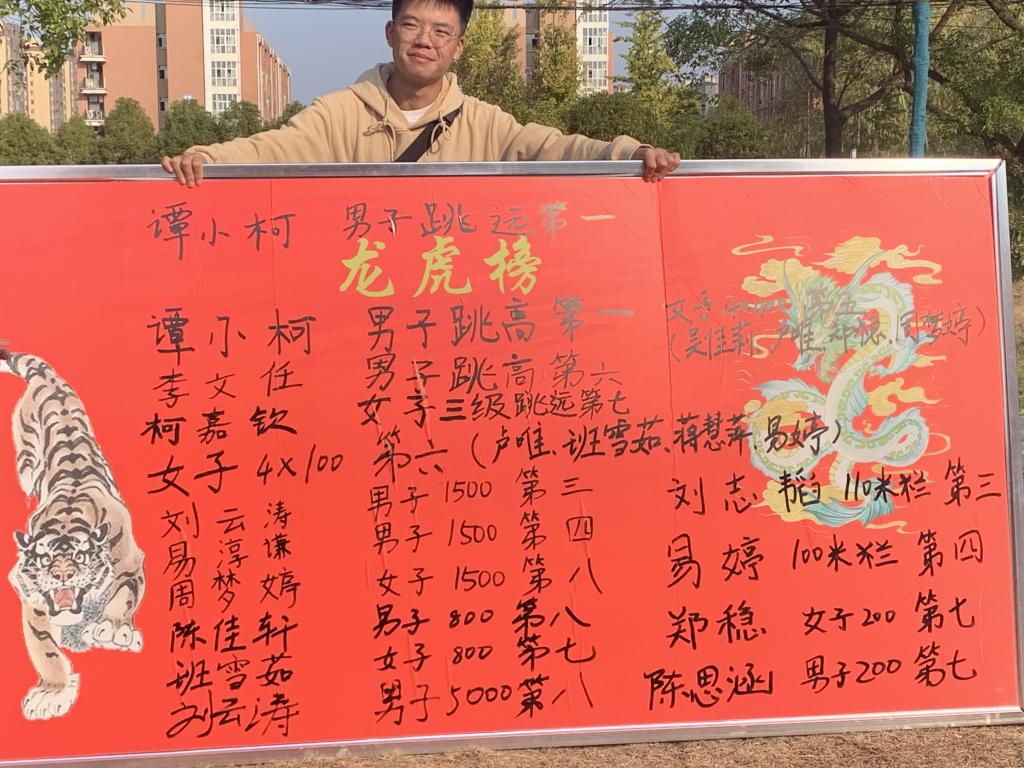 谭小柯 男子跳远第一
龙虎榜
谭小柯 男子跳高第一
李文任 男子跳高第六
柯嘉钦 女子三级跳远第七
女子4×100 第六(卢唯、班雪茹、蒋慧萍、易婷)
刘云涛 男子1500 第三
易淳谦 男子1500 第四
周梦婷 女子1500 第八
陈佳轩 男子800 第八
班雪茹 女子800 第七
刘云涛 男子5000第八
女子 第五
(吴佳莉、卢唯、郑稳、周梦婷)
刘志韬 110米栏 第三
易婷 100米栏 第四
郑稳 女子200 第七
陈思涵 男子200 第七